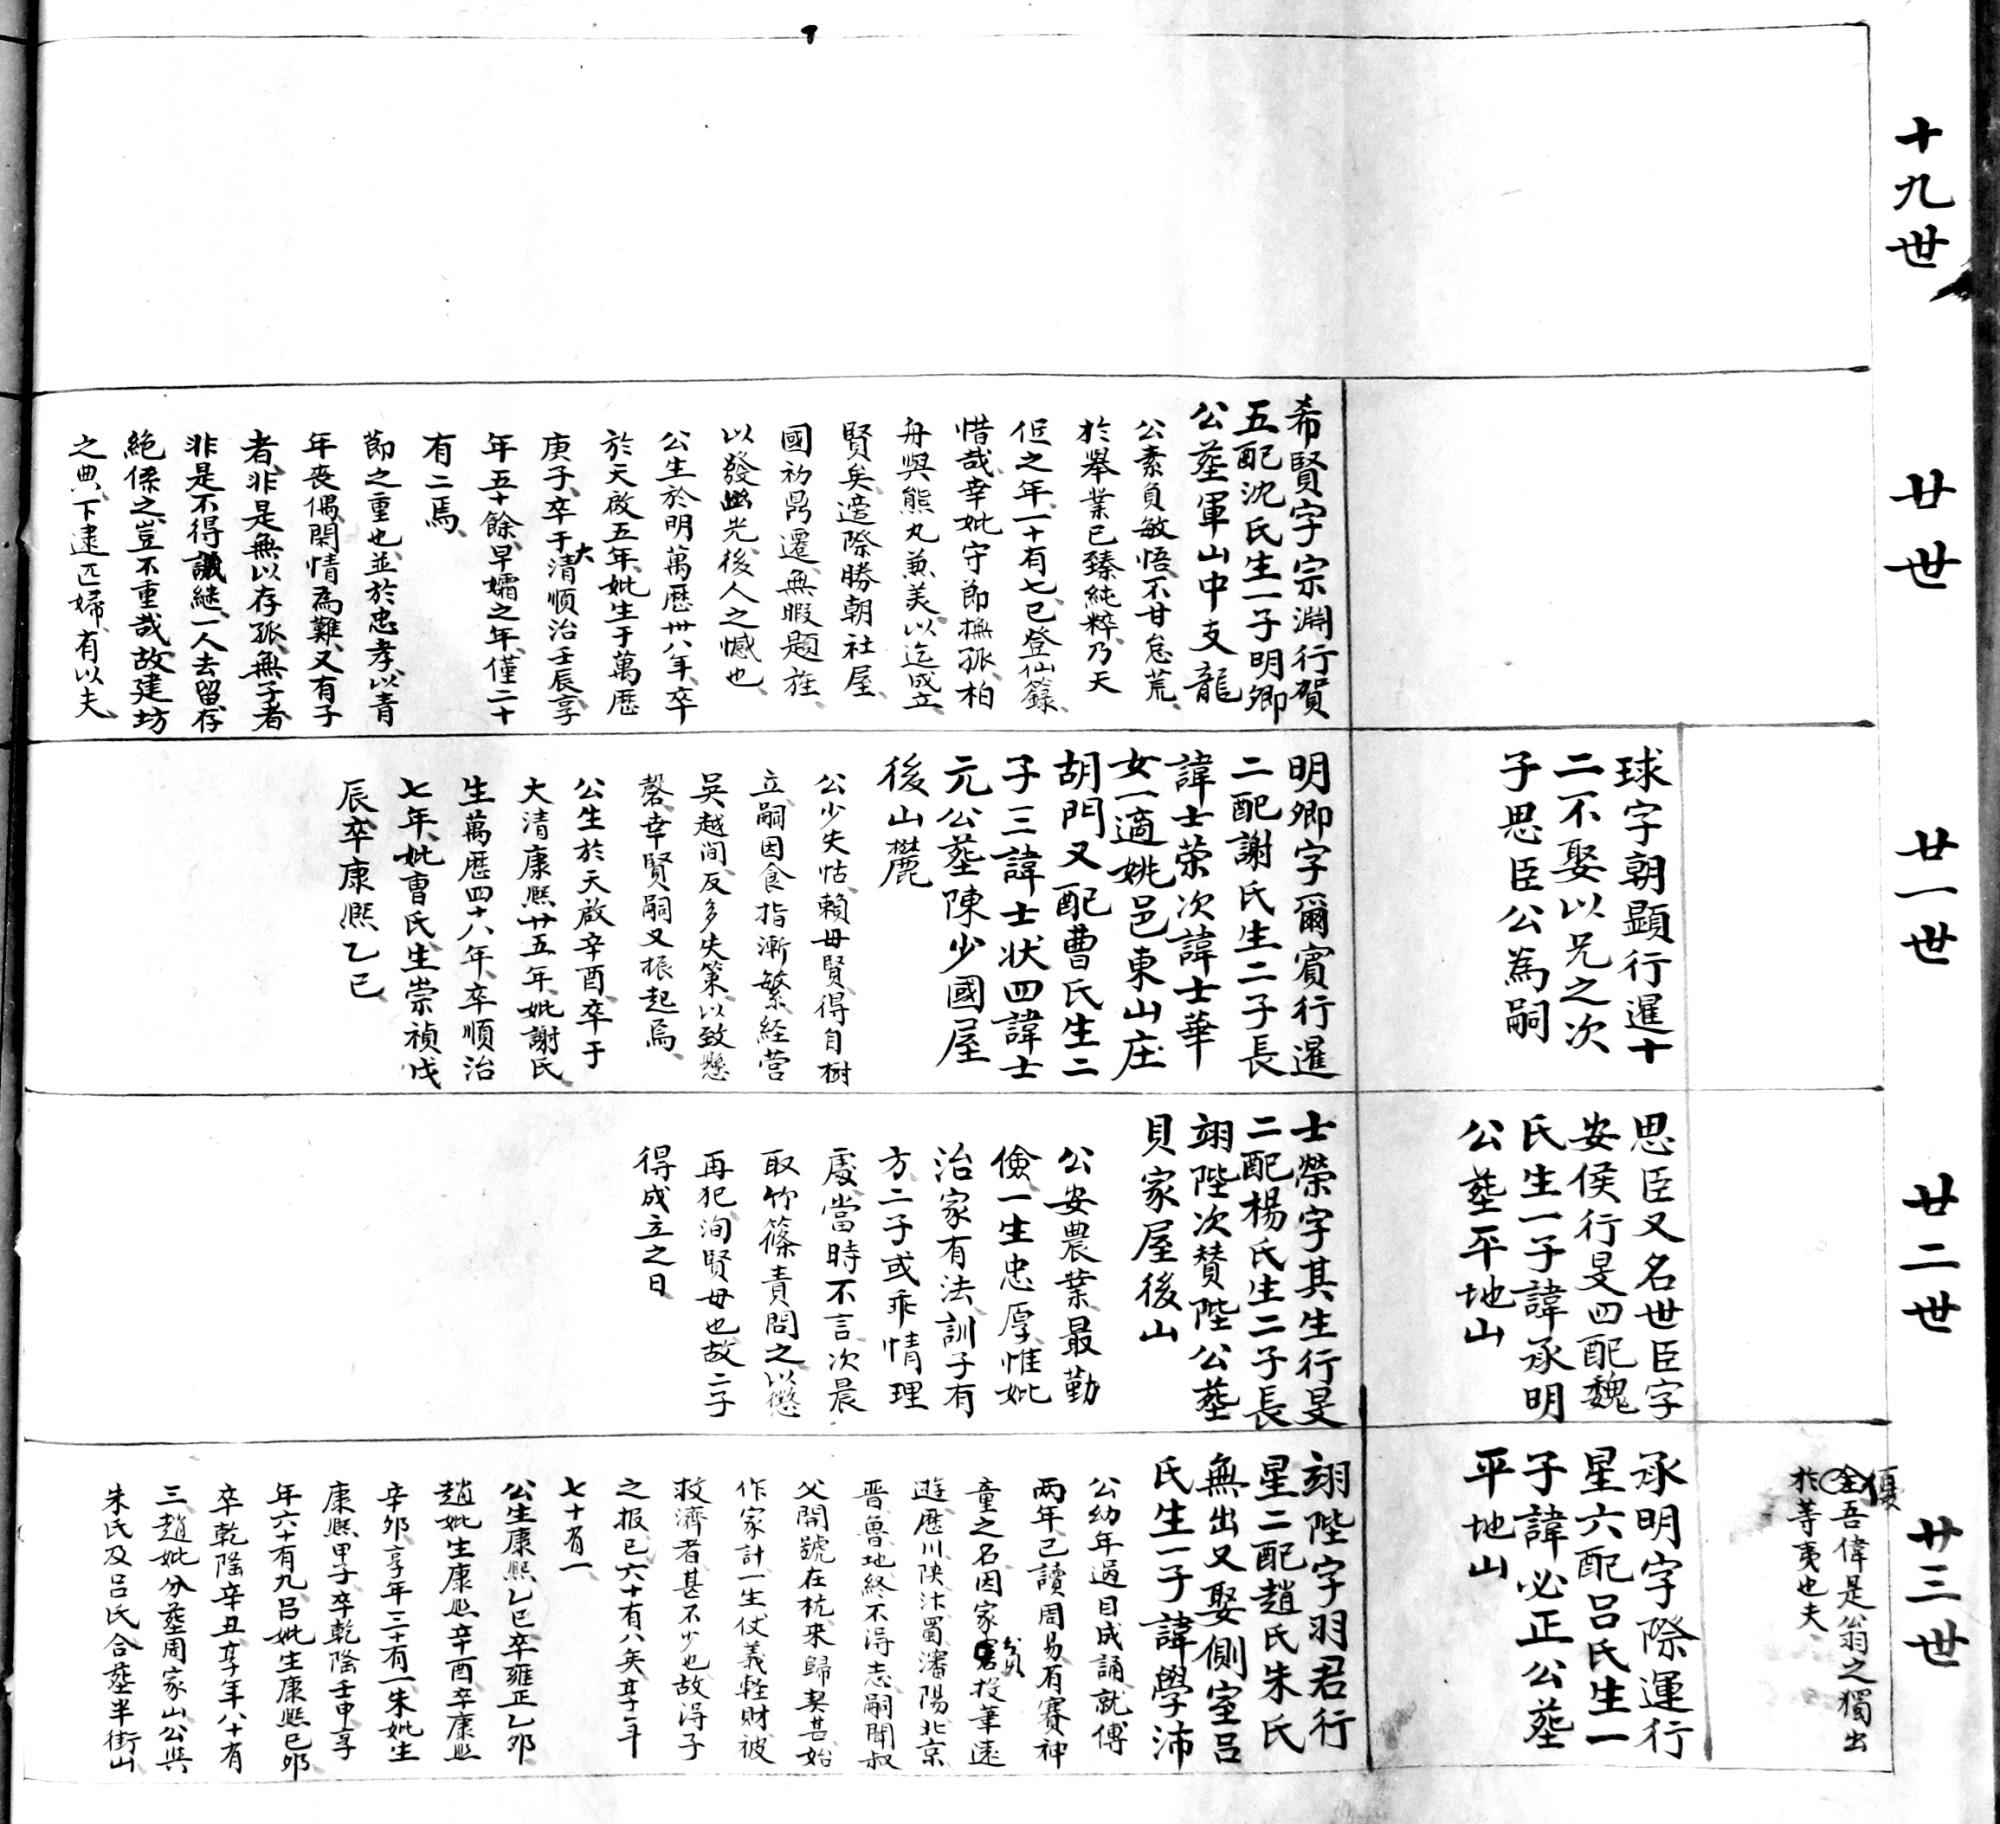 十九世
廿世
希賢字宗淵行賀
五配沈氏生一子明卿
公塟軍山中支龍
公素負敏悟不甘怠荒、
於舉業已臻純粹、乃天
促之年、一十有七、已登仙籙、
惜哉、幸妣守節撫孤、柏
舟與熊丸兼美、以迄成立、
賢矣、遭際勝朝社屋、
國初鼎遷、無暇題旌、
以發幽光、後人之憾也、
公生於明萬歷卅八年、卒
於天啟五年、妣生于萬歷
庚子、卒于大清順治壬辰、享
年五十餘、早孀之年、僅二十
有二焉、
節之重也、並於忠孝、以青
年喪偶、閑情為難、又有子
者、非是無以存孤、無子者、
非是不得議継、一人去留、存
絶係之、豈不重哉、故建坊
之典、下逮匹婦、有以夫、
廿一世
球字朝顕行暹十
二不娶以兄之次
子思臣公為嗣
明卿字爾賓行暹
二配謝氏生二子長
諱士荣次諱士華
女一適姚邑東山庄
胡門又配曹氏生二
子三諱士状四諱士
元公塟陳少國屋
後山麓
公少失怙、賴毋賢、得自樹
立、嗣因食指漸繁、経营
吳越间、反多失策、以致懸
磬、幸賢嗣又振起焉、
公生於天啟辛酉、卒于
大清康熈廿五年、妣謝氏、
生萬歷四十八年、卒順治
七年、妣曹氏、生崇禎戊
辰、卒康熈乙巳、
廿二世
思臣又名世臣字
安侯行旻四配魏
氏生一子諱承明
公塟平地山
士榮字其生行旻
二配楊氏生二子長
翊陛次賛陛公塟
貝家屋後山
公安農業、最勤
儉、一生忠厚、惟妣
治家有法、訓子有
方、二子或乖情理
處、當時不言、次晨
取竹篠責問之、以懲
再犯、洵賢毋也、故二子
得成立之日、
廿三世
優
全吾偉是公翁之獨出
於等夷也夫、
承明字際運行
星六配吕氏生一
子諱必正公塟
平地山
翊陛字羽君行
星二配趙氏朱氏
無出又娶側室吕
氏生一子諱學沛
公幼年過目成誦、就傅
两年、已讀周易、有賽神
童之名、因家貧投筆、遠
遊歷川陝汴蜀瀋陽北京
晋魯地、終不得志、嗣聞叔
父開號在杭、来歸契甚、始
作家計、一生仗義軽財、被
救濟者甚不少也、故得子
之报、已六十有八矣、享年
七十有一
公生康熈乙巳、卒雍正乙夘、
趙妣生康熈辛酉、卒康熈
辛夘、享年三十有一、朱妣生
康熈甲子、卒乾隆壬申、享
年六十有九、吕妣生康熈己夘、
卒乾隆辛丑、享年八十有
三、趙妣分塟周家山、公與
朱氏及吕氏合塟半街山、